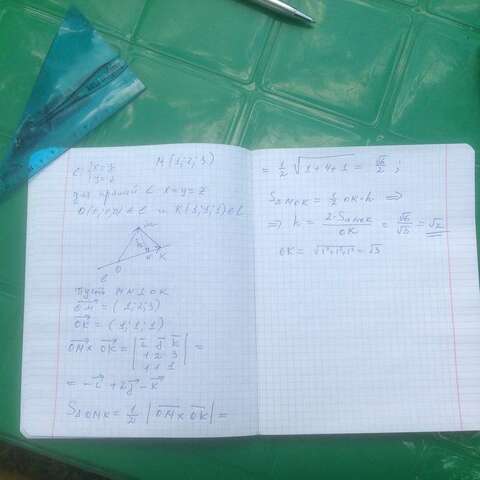 ℓ: { x=y y=z M(1;2;3)
для прямой ℓ x=y=z
O(0;0;0) ∈ ℓ и K(1;1;1) ∈ ℓ
M
h
N K
O
ℓ
Пусть MN ⊥ OK
OM⃗ = (1;2;3)
OK⃗ = (1;1;1)
OM⃗ × OK⃗ = | i⃗ j⃗ k⃗ | =
1 2 3
1 1 1
= -i⃗ + 2j⃗ - k⃗
S△OMK = 1/2 |OM⃗ × OK⃗| =
= 1/2 √(1+4+1) = √6/2 ;
S△MOK = 1/2 OK·h ⇒
⇒ h = 2·S△MOK / OK = √6/√3 = √2
OK = √(1²+1²+1²) = √3